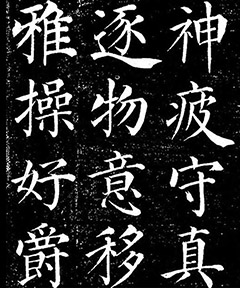 神疲守真
逐物意移
雅操好爵